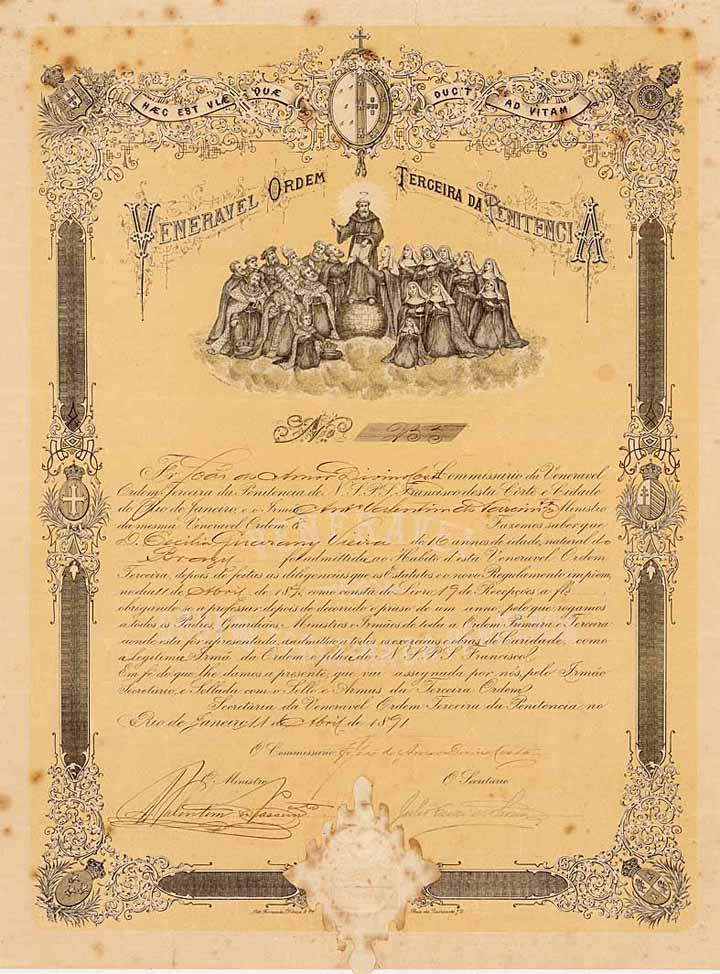 HÆC EST VIÆ QUÆ DUCIT AD VITAM
VENERAVEL ORDEM TERCEIRA DA PENITENCIA
No 233
Fr. João do Amor Divino Costa Commissario da Veneravel
Ordem Terceira da Penitencia de N. S. P. S. Francisco desta Côrte e Cidade
do Rio de Janeiro, e o Irmão Ministro
da mesma Veneravel Ordem &. Fazemos saber que
D. Cecilia Vieira de 16 annos de idade, natural de
foi admittida ao Habito d'esta Veneravel Ordem
Terceira, depois de feitas as diligencias que os Estatutos e o novo Regulamento impõem,
no dia 11 de Abril de 189 como consta do Livro 19 de Recepções a fls
obrigando-se a professar depois de decorrido o praso de um anno, pelo que rogamos
a todos os Padres, Guardiões, Ministros e Irmãos de toda a Ordem Primeira e Terceira
aonde esta for apresentada, a admittão a todos os exercicios e obras de Caridade, como
a legitima Irmã da Ordem e filha de N. S. P. S. Francisco.
Em fé do que lhe damos a presente, que vai assignada por nós, pelo Irmão
Secretario, e Sellada com o Sello e Armas da Terceira Ordem.
Secretaria da Veneravel Ordem Terceira da Penitencia, no
Rio de Janeiro 11 de Abril de 1891
O Commissario Fr. João do Amor Divino Costa
O Ministro O Secretario
Valentim